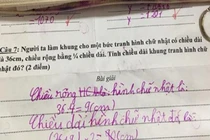 Câu 7: Người ta làm khung cho một bức tranh hình chữ nhật có chiều dài
là 36cm, chiều rộng bằng ¼ chiều dài. Tính chiều dài khung tranh hình chữ
nhật đó? (2 điểm)
Bài giải
Chiều rộng hình chữ nhật là:
36 : 4 = 9 (cm)
Chiều dài hình chữ nhật đó là: